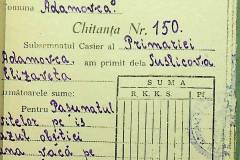 Comuna Adamovca
Chitanța Nr. 150.
Subsemnatul Casier al Primariei
Adamovca, am primit dela Suslicova
Elizaveta
S U M A
R. K. K. S. P.
următoarele sume:
Pentru Pasunatul
vitelor pe is
lazul obștiei
una vacă pe